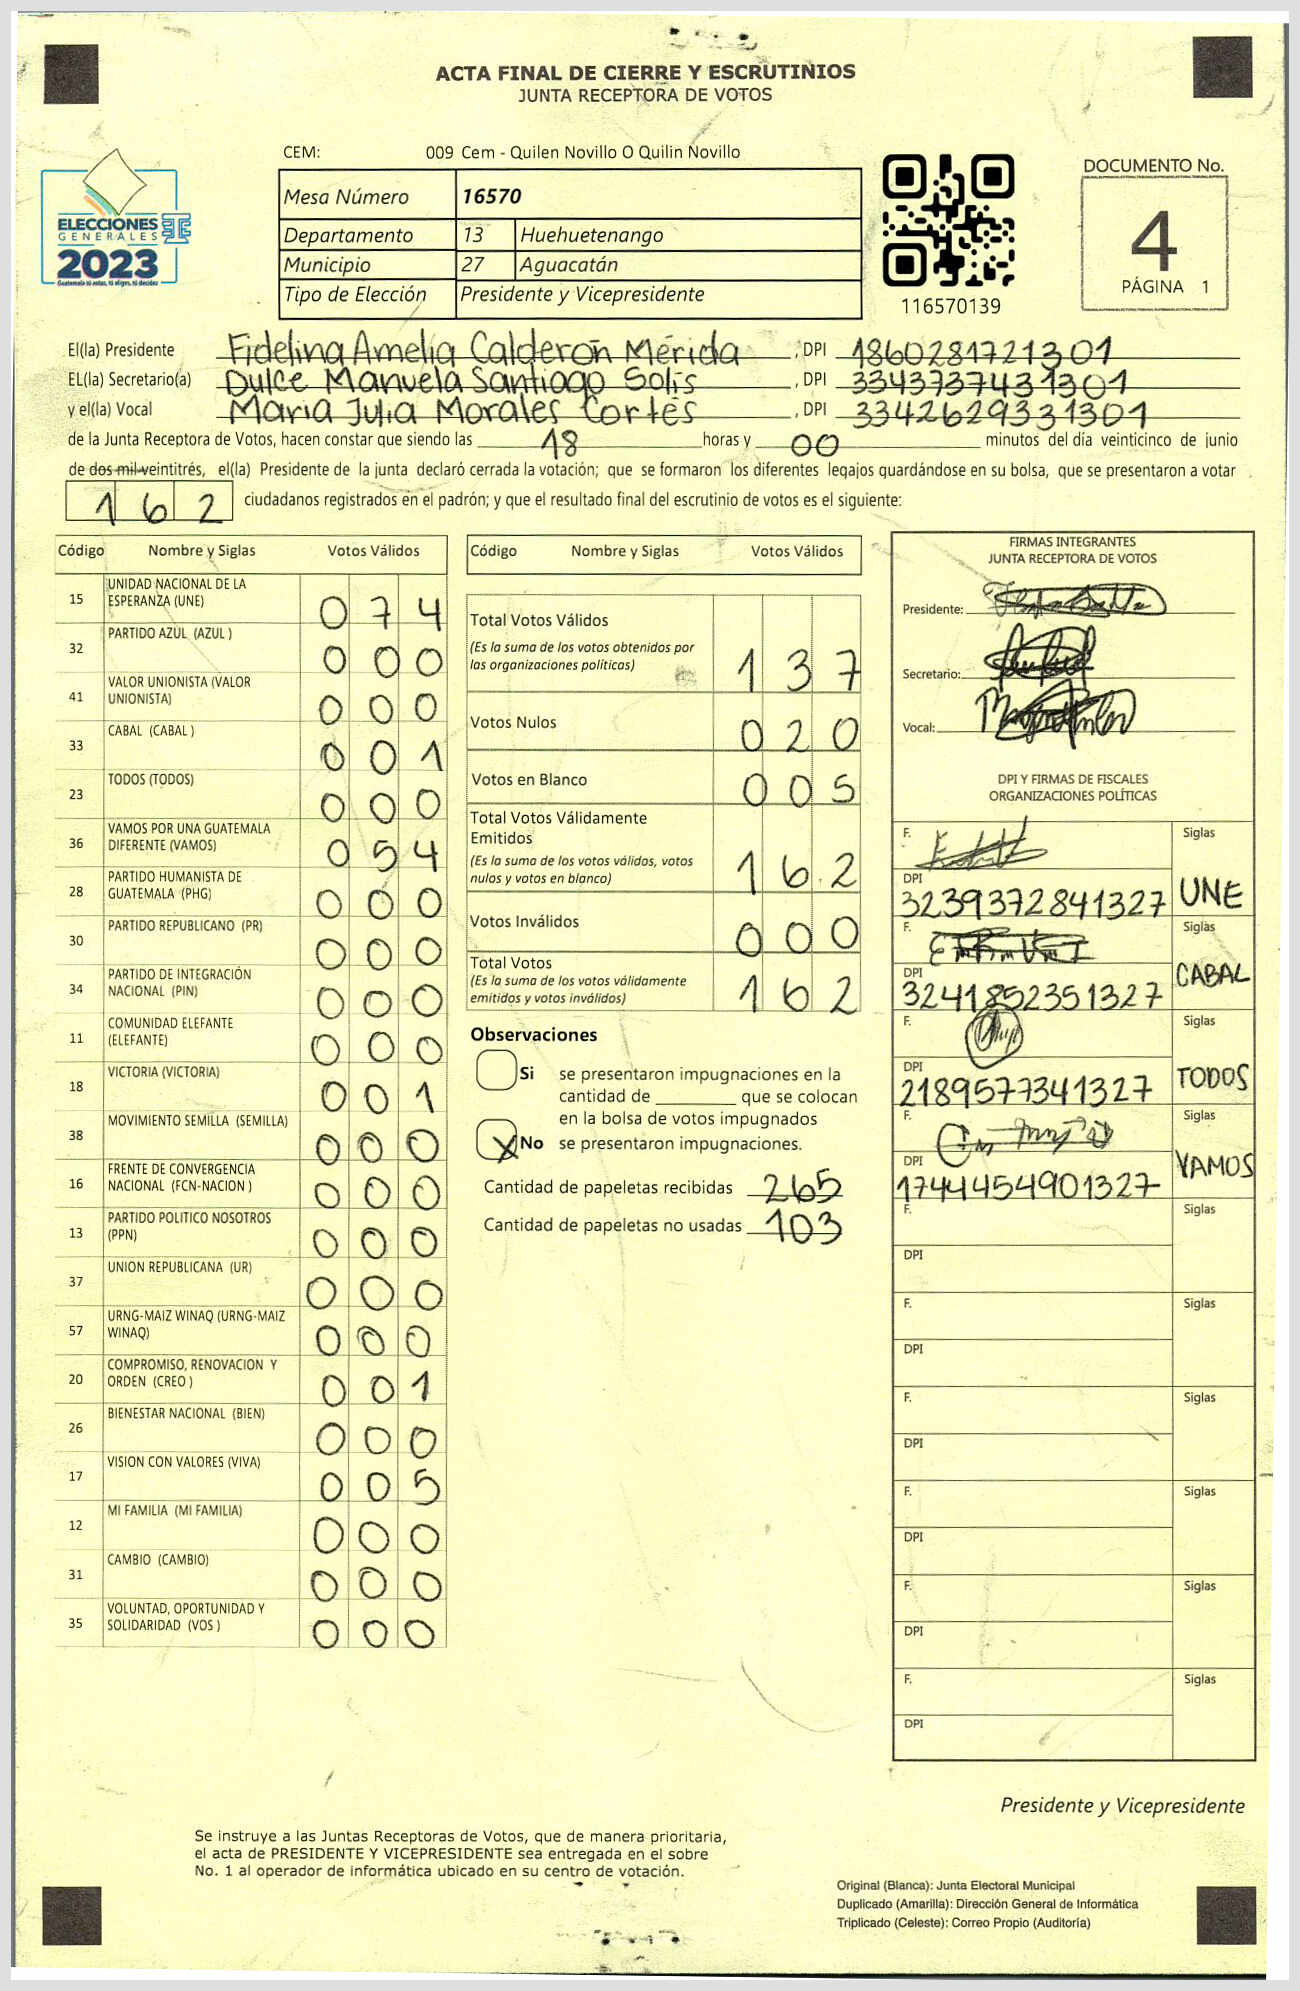 ACTA FINAL DE CIERRE Y ESCRUTINIOS
JUNTA RECEPTORA DE VOTOS
CEM: 009 Cem - Quilen Novillo O Quilin Novillo
Mesa Número 16570
Departamento 13 Huehuetenango
Municipio 27 Aguacatán
Tipo de Elección Presidente y Vicepresidente
ELECCIONES
GENERALES
2023
Guatemala tú votas, tú eliges, tú decides
116570139
DOCUMENTO No.
4
PÁGINA 1
El(la) Presidente Fidelina Amelia Calderón Mérida , DPI 1860281721301
EL(la) Secretario(a) Dulce Manuela Santiago Solis , DPI 3343737431301
y el(la) Vocal Maria Julia Morales Cortés , DPI 3342629331301
de la Junta Receptora de Votos, hacen constar que siendo las 18 horas y 00 minutos del día veinticinco de junio
de dos mil veintitrés, el(la) Presidente de la junta declaró cerrada la votación; que se formaron los diferentes legajos guardándose en su bolsa, que se presentaron a votar
162 ciudadanos registrados en el padrón; y que el resultado final del escrutinio de votos es el siguiente:
Código Nombre y Siglas Votos Válidos
15 UNIDAD NACIONAL DE LA
ESPERANZA (UNE) 0 7 4
32 PARTIDO AZUL (AZUL ) 0 0 0
41 VALOR UNIONISTA (VALOR
UNIONISTA) 0 0 0
33 CABAL (CABAL ) 0 0 1
23 TODOS (TODOS) 0 0 0
36 VAMOS POR UNA GUATEMALA
DIFERENTE (VAMOS) 0 5 4
28 PARTIDO HUMANISTA DE
GUATEMALA (PHG) 0 0 0
30 PARTIDO REPUBLICANO (PR) 0 0 0
34 PARTIDO DE INTEGRACIÓN
NACIONAL (PIN) 0 0 0
11 COMUNIDAD ELEFANTE
(ELEFANTE) 0 0 0
18 VICTORIA (VICTORIA) 0 0 1
38 MOVIMIENTO SEMILLA (SEMILLA) 0 0 0
16 FRENTE DE CONVERGENCIA
NACIONAL (FCN-NACION ) 0 0 0
13 PARTIDO POLITICO NOSOTROS
(PPN) 0 0 0
37 UNION REPUBLICANA (UR) 0 0 0
57 URNG-MAIZ WINAQ (URNG-MAIZ
WINAQ) 0 0 0
20 COMPROMISO, RENOVACION Y
ORDEN (CREO ) 0 0 1
26 BIENESTAR NACIONAL (BIEN) 0 0 0
17 VISION CON VALORES (VIVA) 0 0 5
12 MI FAMILIA (MI FAMILIA) 0 0 0
31 CAMBIO (CAMBIO) 0 0 0
35 VOLUNTAD, OPORTUNIDAD Y
SOLIDARIDAD (VOS ) 0 0 0
Código Nombre y Siglas Votos Válidos
Total Votos Válidos
(Es la suma de los votos obtenidos por
las organizaciones políticas) 1 3 7
Votos Nulos 0 2 0
Votos en Blanco 0 0 5
Total Votos Válidamente
Emitidos
(Es la suma de los votos válidos, votos
nulos y votos en blanco) 1 6 2
Votos Inválidos 0 0 0
Total Votos
(Es la suma de los votos válidamente
emitidos y votos inválidos) 1 6 2
Observaciones
Si se presentaron impugnaciones en la
cantidad de ________ que se colocan
en la bolsa de votos impugnados
X No se presentaron impugnaciones.
Cantidad de papeletas recibidas 265
Cantidad de papeletas no usadas 103
FIRMAS INTEGRANTES
JUNTA RECEPTORA DE VOTOS
Presidente:
Secretario:
Vocal:
DPI Y FIRMAS DE FISCALES
ORGANIZACIONES POLÍTICAS
F. Siglas
DPI
3239372841327 UNE
F. Siglas
DPI
3241852351327 CABAL
F. Siglas
DPI
2189577341327 TODOS
F. Siglas
DPI
1744454901327 VAMOS
F. Siglas
DPI
F. Siglas
DPI
F. Siglas
DPI
F. Siglas
DPI
F. Siglas
DPI
F. Siglas
DPI
Presidente y Vicepresidente
Se instruye a las Juntas Receptoras de Votos, que de manera prioritaria,
el acta de PRESIDENTE Y VICEPRESIDENTE sea entregada en el sobre
No. 1 al operador de informática ubicado en su centro de votación.
Original (Blanca): Junta Electoral Municipal
Duplicado (Amarilla): Dirección General de Informática
Triplicado (Celeste): Correo Propio (Auditoría)